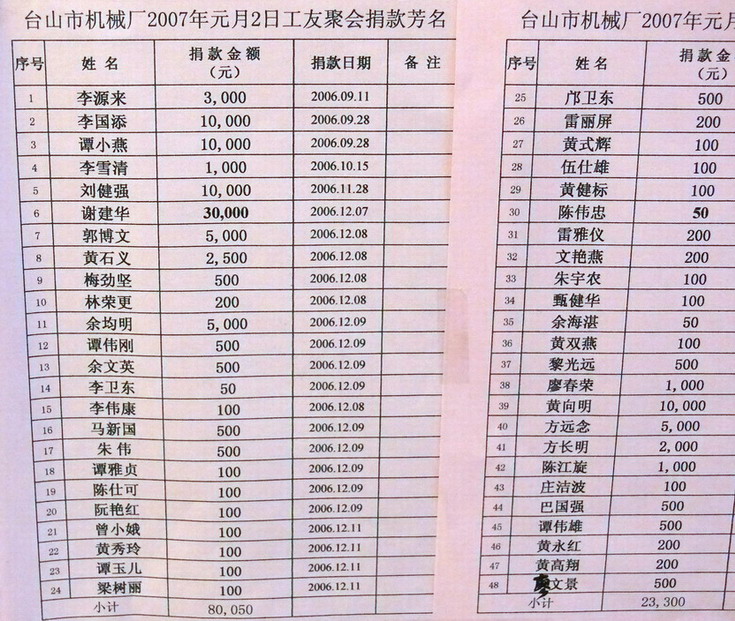 台山市机械厂2007年元月2日工友聚会捐款芳名
序号 姓 名 捐 款 金 额（元） 捐款日期 备 注
1 李源来 3,000 2006.09.11
2 李国添 10,000 2006.09.28
3 谭小燕 10,000 2006.09.28
4 李雪清 1,000 2006.10.15
5 刘健强 10,000 2006.11.28
6 谢建华 30,000 2006.12.07
7 郭博文 5,000 2006.12.08
8 黄石义 2,500 2006.12.08
9 梅劲坚 500 2006.12.08
10 林荣更 200 2006.12.08
11 余均明 5,000 2006.12.09
12 谭伟刚 500 2006.12.09
13 余文英 500 2006.12.09
14 李卫东 50 2006.12.09
15 李伟康 100 2006.12.08
16 马新国 500 2006.12.09
17 朱 伟 500 2006.12.09
18 谭雅贞 100 2006.12.09
19 陈仕可 100 2006.12.09
20 阮艳红 100 2006.12.09
21 曾小娥 100 2006.12.11
22 黄秀玲 100 2006.12.11
23 谭玉儿 100 2006.12.11
24 梁树丽 100 2006.12.11
小计 80,050
台山市机械厂2007年元月
序号 姓 名 捐 款 金（元）
25 邝卫东 500
26 雷丽屏 200
27 黄式辉 100
28 伍仕雄 100
29 黄健标 100
30 陈伟忠 50
31 雷雅仪 200
32 文艳燕 200
33 朱宇农 100
34 甄健华 100
35 余海湛 50
36 黄双燕 100
37 黎光远 500
38 廖春荣 1,000
39 黄向明 10,000
40 方远念 5,000
41 方长明 2,000
42 陈江旋 1,000
43 庄洁波 100
44 巴国强 500
45 谭伟雄 500
46 黄永红 200
47 黄高翔 200
48 廖文景 500
小计 23,300